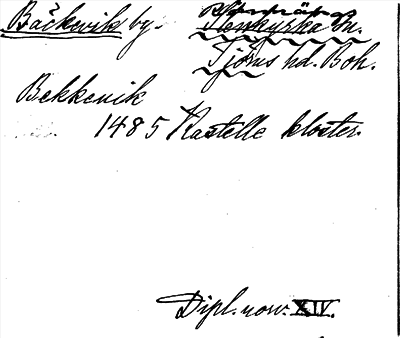 Bäckevik by.
Stenkyrka sn.
Tjörns hd. Boh.
Bekkevik
1485 Kastelle kloster.
Dipl. norv. XIV.